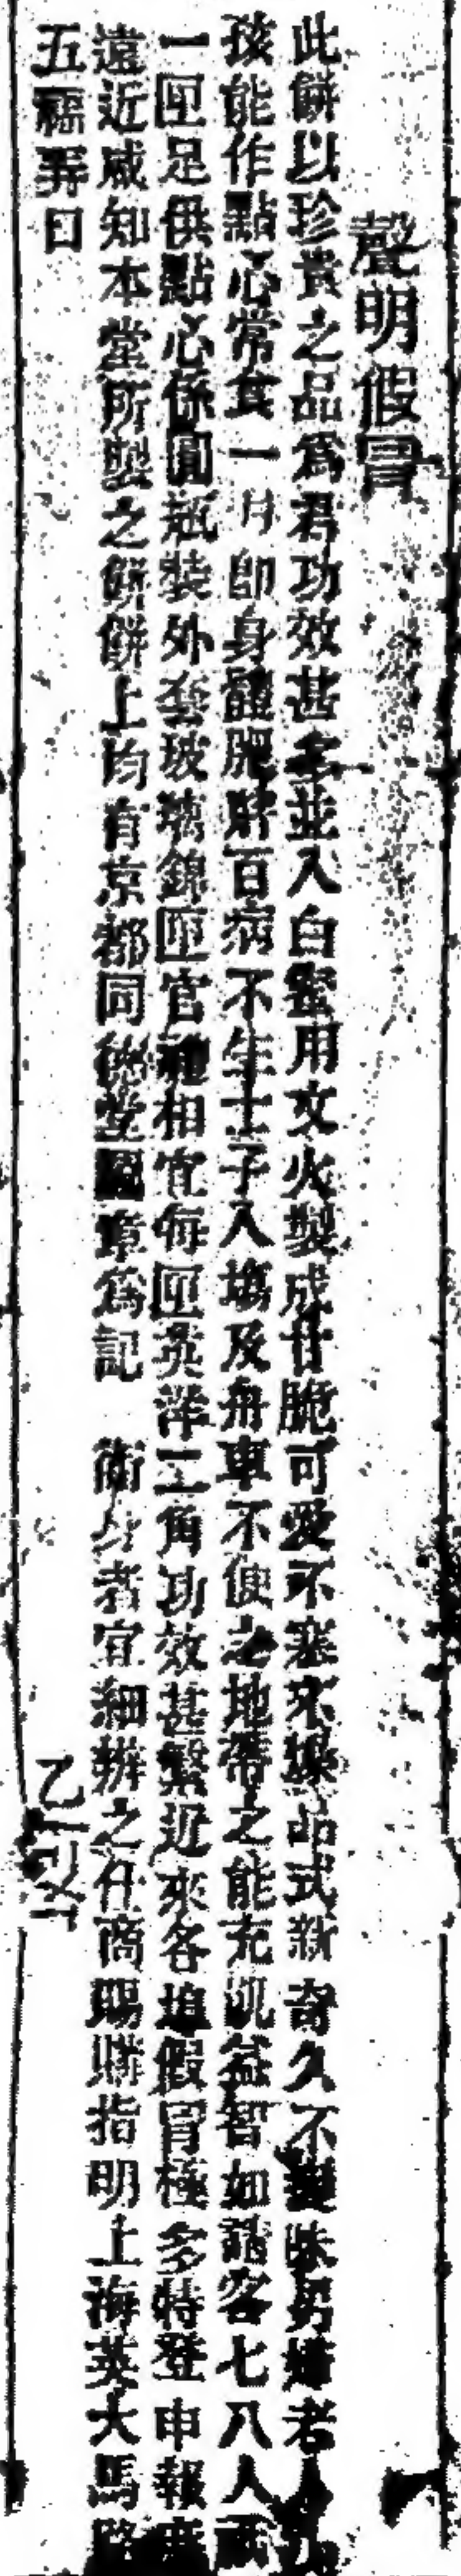 聲明假冒
此餅以珍貴之品爲君功效甚多並入白蜜用文火製成甘脆可愛不寒不燥品式新奇久不變味男婦老
孩能作點心常食一月卽身體肥胖百病不生士子入場及舟車不便之地帶之能充飢益智如請客七八人
一匣足供點心係圓瓶裝外套玻璃錦匣官禮相宜每匣英洋二角功效甚繁近來各埠假冒極多特登申報
遠近咸知本堂所製之餅餅上均有京都同德堂圖章爲記 衛身者宜細辨之仕商賜購指明上海英大馬路
五福弄口